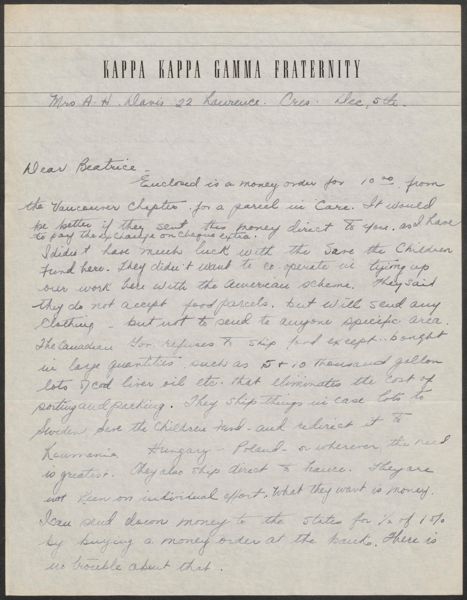 KAPPA KAPPA GAMMA FRATERNITY
Mrs A. H. Davis 22 Lawrence. Cres. Dec, 5th.
Dear Beatrice -
Enclosed is a money order for 10.00 from
the Vancouver Chapter for a parcel in Care. It would
be better if they sent this money direct to you, as I have
to pay the exchange on cheques extra.
I didn't have much luck with the Save the Children
Fund here. They didn't want to co operate in tying up
our work here with the American scheme. They said
they do not accept food parcels. but will send any
clothing - but not to send to anyone specific area.
The Canadian Gov. refuses to ship food except bought
in large quantities such as 5 + 10 thousand gallon
lots of cod liver oil etc. that eliminates the cost of
sorting and packing. They ship things in case lots to
Sweden Save the Children Fund - and redirect it to
Roumania Hungary - Poland - or wherever the need
is greatest. They also ship direct to France. They are
not keen on individual effort. What they want is money.
I can send down money to the States for 1/2 of 1%
by buying a money order at the bank. There is
no trouble about that.